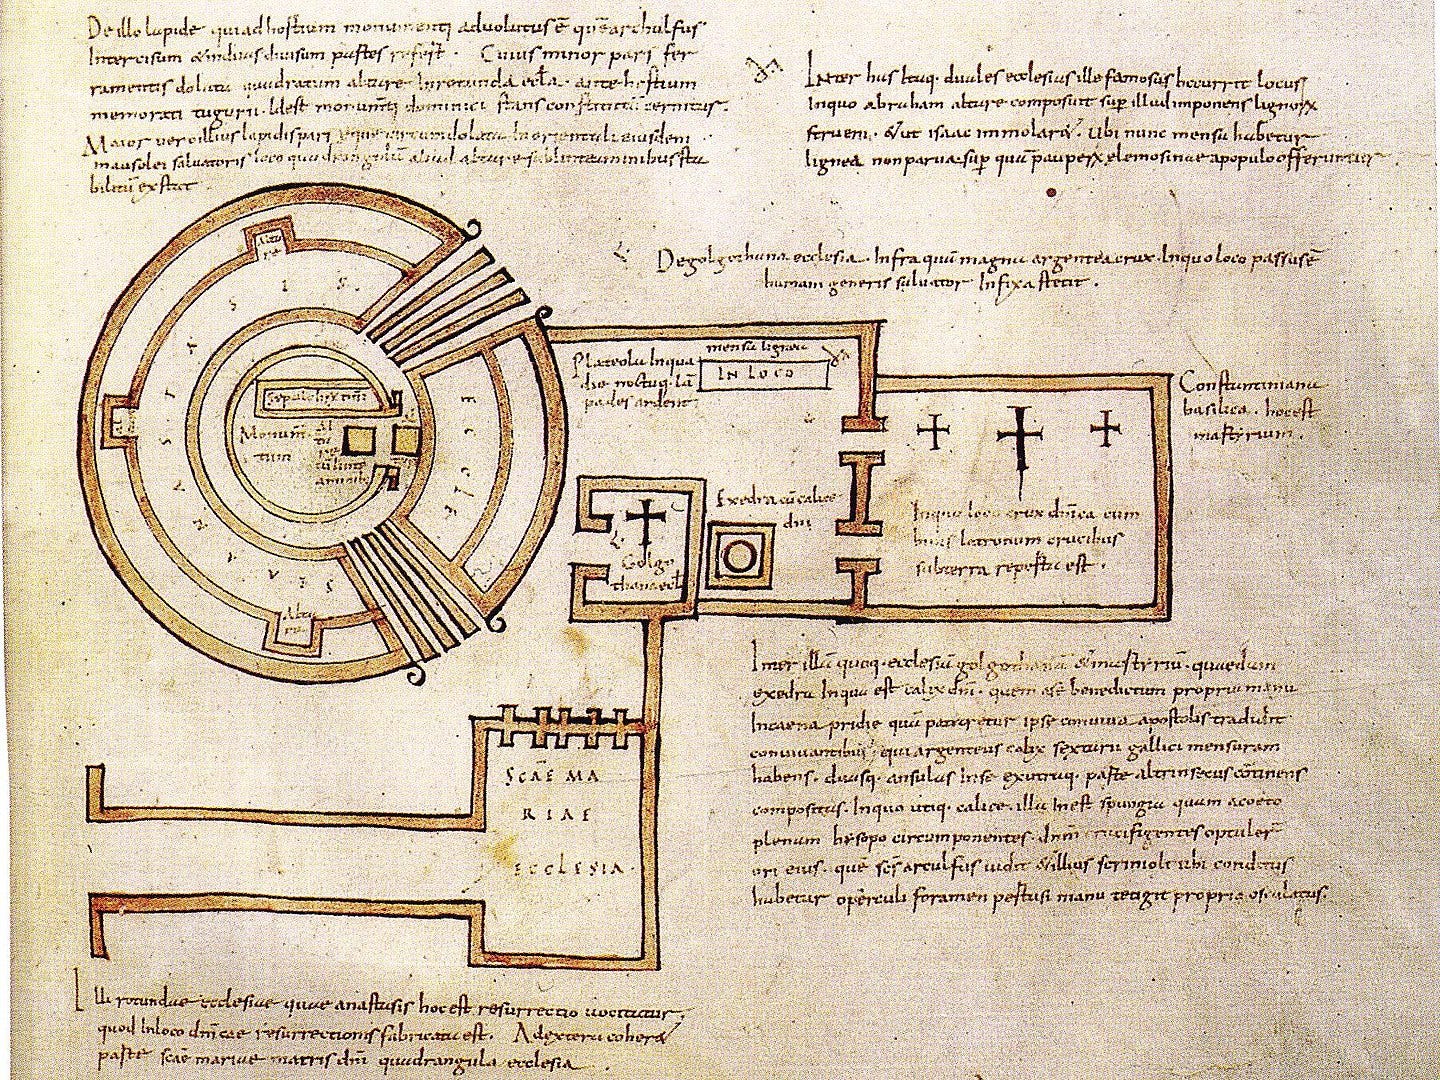 De illo lapide qui ad hostium monumenti advolutus ē quē arculfus
Intercisum & in duas divisum partes refert. Cuius minor pars fer
ramentis dolata quadratum altare In rotunda eccla. ante hostium
memorati tugurii. Id est monumti dominici stans constitutū cernitur.
Maior vero illius lapidis pars circumdolata In orientali eiusdem
loco quadrangulū aliud altare sub linteaminibus sta
bilitū exstat
Inter has itaq. duales ecclesias ille famosus occurrit locus
In quo abraham altare composuit sup illud imponens lignorx
struem. & ut isaac immolar&. Ubi nunc mensa habetur
lignea non parva sup quā pauperx elemosinae a populo offeruntur
De golgothana ecclesia. Infra quā magna argentea crux. In quo loco passus ē
humani generis salvator Infixa stetit.
Plateola In qua
die noctuq. lā
pades ardent
mensa lignea
IN LOCO
Constantiniana
basilica. hoc est
martyrium.
Altare
ANASTASIS
ROTUNDA
ECCLESIA
Sepulchrum dni
Monum
tum
Exedra cū calice
dni
Golgo
thana eccl
In quo loco crux dnica cum
binis latronum crucibus
sub terra reperta est.
Altare
Inter illā quoq. ecclesiā golgothanā & martyriū. quaedam
exedra In qua est calix dni. quem a se benedictum propria manu
In caena pridie quā pateretur ipse conviva apostolis tradidit
convivantibus. qui argenteus calix sextarii gallici mensuram
habens. duasq. ansulas In se ex utraq. parte altrinsecus cōtinens
compositus. In quo utiq. calice. illa Inest spungia quam aceto
plenam hysopo circumponentes. dnm crucifigentes optuler
ori eius. quē scs arculfus vidit & illius scrinioli ubi conditus
habetur operculi foramen pertusi manu tetigit propria osculatus.
SCAE MA
RIAE
ECCLESIA.
Illi rotundae ecclesiae quae anastasis hoc est resurrectio vocitatur.
quod In loco dnicae resurrectionis fabricata est. A dextera coher&
parte scae mariae matris dni quadrangula ecclesia.